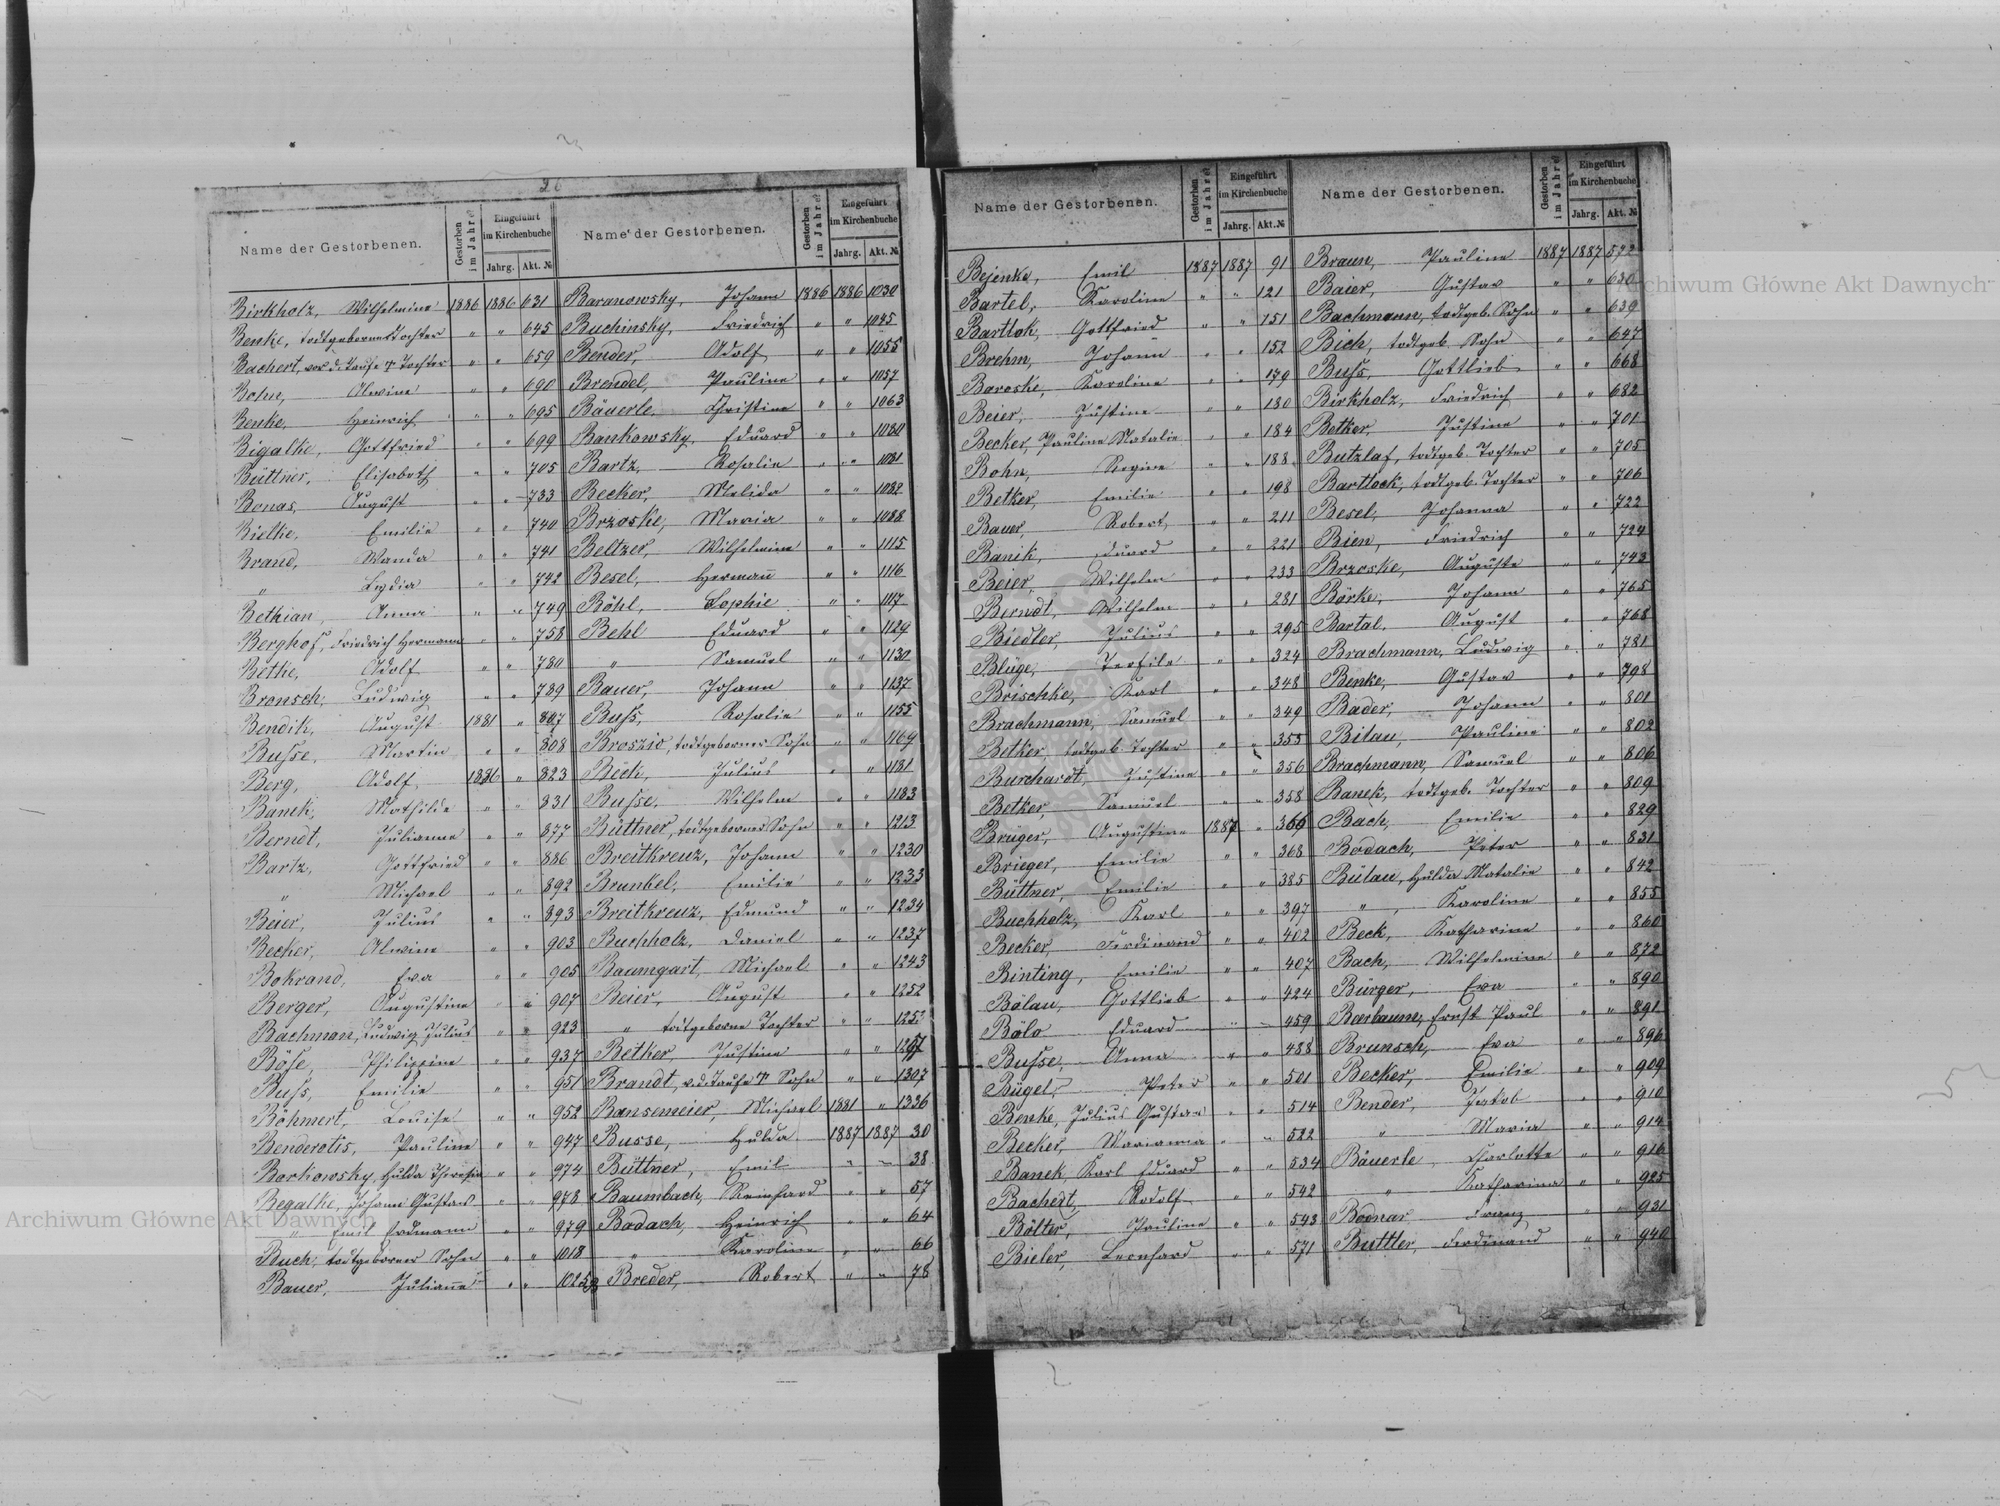 26
Name der Gestorbenen. Gestorben im Jahre Eingeführt im Kirchenbuche Jahrg. Akt. №
Birkholz, Wilhelmine 1886 1886 631
Benke, todtgeborene Tochter " " 645
Bachert, vor d. Taufe † Tochter " " 659
Bohne, Alwine " " 690
Benke, Heinrich " " 695
Bigalke, Gottfried " " 699
Büttner, Elisabeth " " 705
Bonas, August " " 733
Bielke, Emilie " " 740
Brand, Wanda " " 741
" Lydia " " 742
Bethian, Anna " " 749
Berghof, Friedrich Hermann " " 758
Bethke, Adolf " " 780
Bronsch, Ludwig " " 789
Bendik, August 1881 " 807
Busse, Martin " " 808
Berg, Adolf 1886 " 823
Banek, Mathilde " " 831
Berndt, Julianne " " 877
Bartz, Gottfried " " 886
" Michael " " 892
Beier, Julius " " 893
Becker, Alwine " " 903
Bohrand, Eva " " 905
Berger, Augustine " " 907
Bachman, Ludwig Julius " " 923
Böse, Philippine " " 937
Buss, Emilie " " 951
Böhmert, Louise " " 952
Benderotis, Pauline " " 947
Borkowsky, Hulda Theresia " " 974
Begalke, Johann Gustav " " 978
" Emil Erdmann " " 979
Buch, todtgeborner Sohn " " 1018
Bauer, Julianne " " 1025
Name der Gestorbenen. Gestorben im Jahre Eingeführt im Kirchenbuche Jahrg. Akt. №
Baranowsky, Johann 1886 1886 1030
Buchinsky, Friedrich " " 1045
Bender, Adolf " " 1055
Brendel, Pauline " " 1057
Bäuerle, Christine " " 1063
Bankowsky, Eduard " " 1080
Bartz, Rosalie " " 1081
Becker, Melida " " 1082
Brzoske, Maria " " 1088
Beltzer, Wilhelmine " " 1115
Besel, Hermann " " 1116
Böhl, Sophie " " 1117
Behl Eduard " " 1129
" Samuel " " 1130
Bauer, Johann " " 1137
Buss, Rosalie " " 1155
Broszio, todtgeborner Sohn " " 1169
Beck, Julius " " 1181
Busse, Wilhelm " " 1183
Büttner, todtgeborner Sohn " " 1213
Breitkreuz, Johann " " 1230
Brunkel, Emilie " " 1233
Breitkreuz, Edmund " " 1234
Buchholz, Daniel " " 1237
Baumgart, Michael " " 1243
Beier, August " " 1252
" todtgeborne Tochter " " 1253
Betker, Justine " " 1297
Brandt, v. d. Taufe † Sohn " " 1307
Bansemeier, Michael 1881 " 1336
Busse, Hulda 1887 1887 30
Büttner, Emil " " 38
Baumbach, Reinhard " " 57
Bodach, Heinrich " " 64
" Karoline " " 66
Breder, Robert " " 78
Name der Gestorbenen. Gestorben im Jahre Eingeführt im Kirchenbuche Jahrg. Akt. №
Bejenke, Emil 1887 1887 91
Bartel, Karoline " " 121
Bartlok, Gottfried " " 151
Brehm, Johann " " 152
Boroske, Karoline " " 179
Beier, Justine " " 180
Becker, Pauline Natalie " " 184
Bohn, Regine " " 188
Betker, Emilie " " 198
Bauer, Robert " " 211
Banik, Eduard " " 221
Beier, Wilhelm " " 233
Berndt, Wilhelm " " 281
Biedler, Julius " " 295
Blüge, Teofile " " 324
Brischke, Karl " " 348
Brachmann, Samuel " " 349
Betker, todtgeb. Tochter " " 355
Burchardt, Justine " " 356
Betker, Samuel " " 358
Brüger, Augustine 1887 " 366
Brieger, Emilie " " 368
Büttner, Emilie " " 385
Buchholz, Karl " " 397
Becker, Ferdinand " " 402
Binting, Emilie " " 407
Bölau, Gottlieb " " 424
Bölo Eduard " " 459
Busse, Anna " " 488
Bügel, Peter " " 501
Benke, Julius Gustav " " 514
Becker, Marianna " " 522
Banek, Karl Eduard " " 534
Bachert, Rodolf " " 542
Bölter, Pauline " " 543
Bieler, Leonhard " " 571
Name der Gestorbenen. Gestorben im Jahre Eingeführt im Kirchenbuche Jahrg. Akt. №
Braun, Pauline 1887 1887 572
Baier, Gustav " " 630
Bachmann, todtgeb. Sohn " " 639
Bich, todtgeb. Sohn " " 647
Buss, Gottlieb " " 668
Birkholz, Friedrich " " 682
Betker, Justine " " 701
Butzlaf, todtgeb. Tochter " " 705
Bartlock, todtgeb. Tochter " " 706
Besel, Johanna " " 722
Bien, Friedrich " " 724
Brzoske, Auguste " " 743
Börke, Johann " " 765
Bartal, August " " 768
Brachmann, Ludwig " " 781
Benke, Gustav " " 798
Bader, Johann " " 801
Bilau, Pauline " " 802
Brachmann, Samuel " " 806
Banek, todtgeb. Tochter " " 809
Bach, Emilie " " 829
Bodach, Peter " " 831
Bülau, Hulda Natalie " " 842
" , Karoline " " 855
Beck, Katharine " " 860
Bach, Wilhelmine " " 872
Bürger, Eva " " 890
Baerbaum, Ernst Paul " " 891
Brunsch, Eva " " 896
Becker, Emilie " " 909
Bender, Jakob " " 910
" Maria " " 914
Bäuerle, Charlotte " " 916
" Katharina " " 925
Bodnar Franz " " 931
Buttler, Ferdinand " " 940
Archiwum Główne Akt Dawnych
Archiwum Główne Akt Dawnych